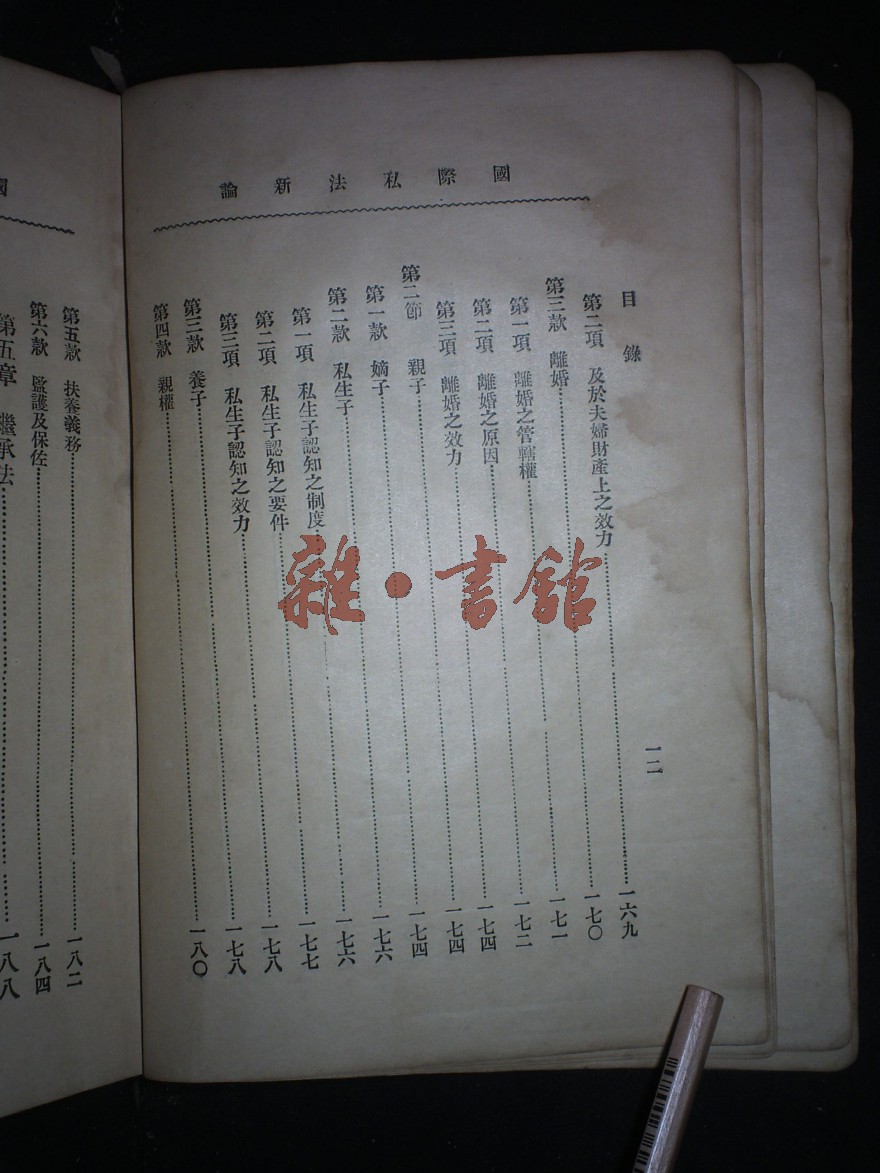 國際私法新論
目錄 一二
第二項 及於夫婦財產上之效力……一六九
第三款 離婚……一七〇
第一項 離婚之管轄權……一七一
第二項 離婚之原因……一七二
第三項 離婚之效力……一七四
第二節 親子……一七四
第一款 嫡子……一七四
第二款 私生子……一七六
第一項 私生子認知之制度……一七六
第二項 私生子認知之要件……一七七
第三項 私生子認知之效力……一七八
第三款 養子……一七八
第四款 親權……一八〇
國
第五款 扶養義務……一八二
第六款 監護及保佐……一八四
第五章 繼承法……一八八
雜·書館